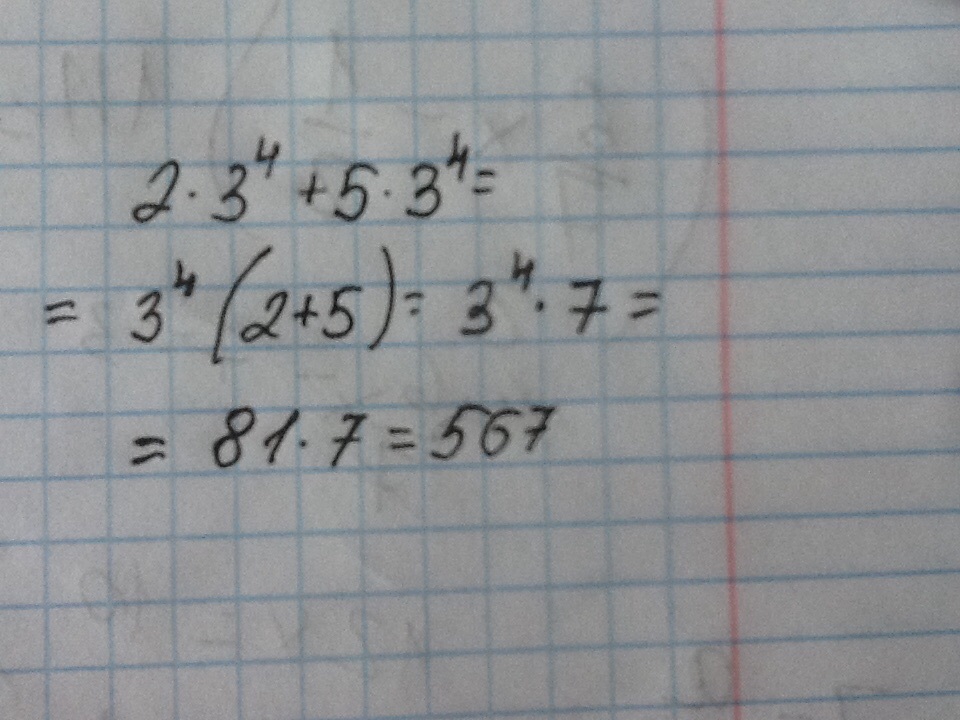 2·3⁴+5·3⁴=
= 3⁴(2+5)= 3⁴·7=
= 81·7=567